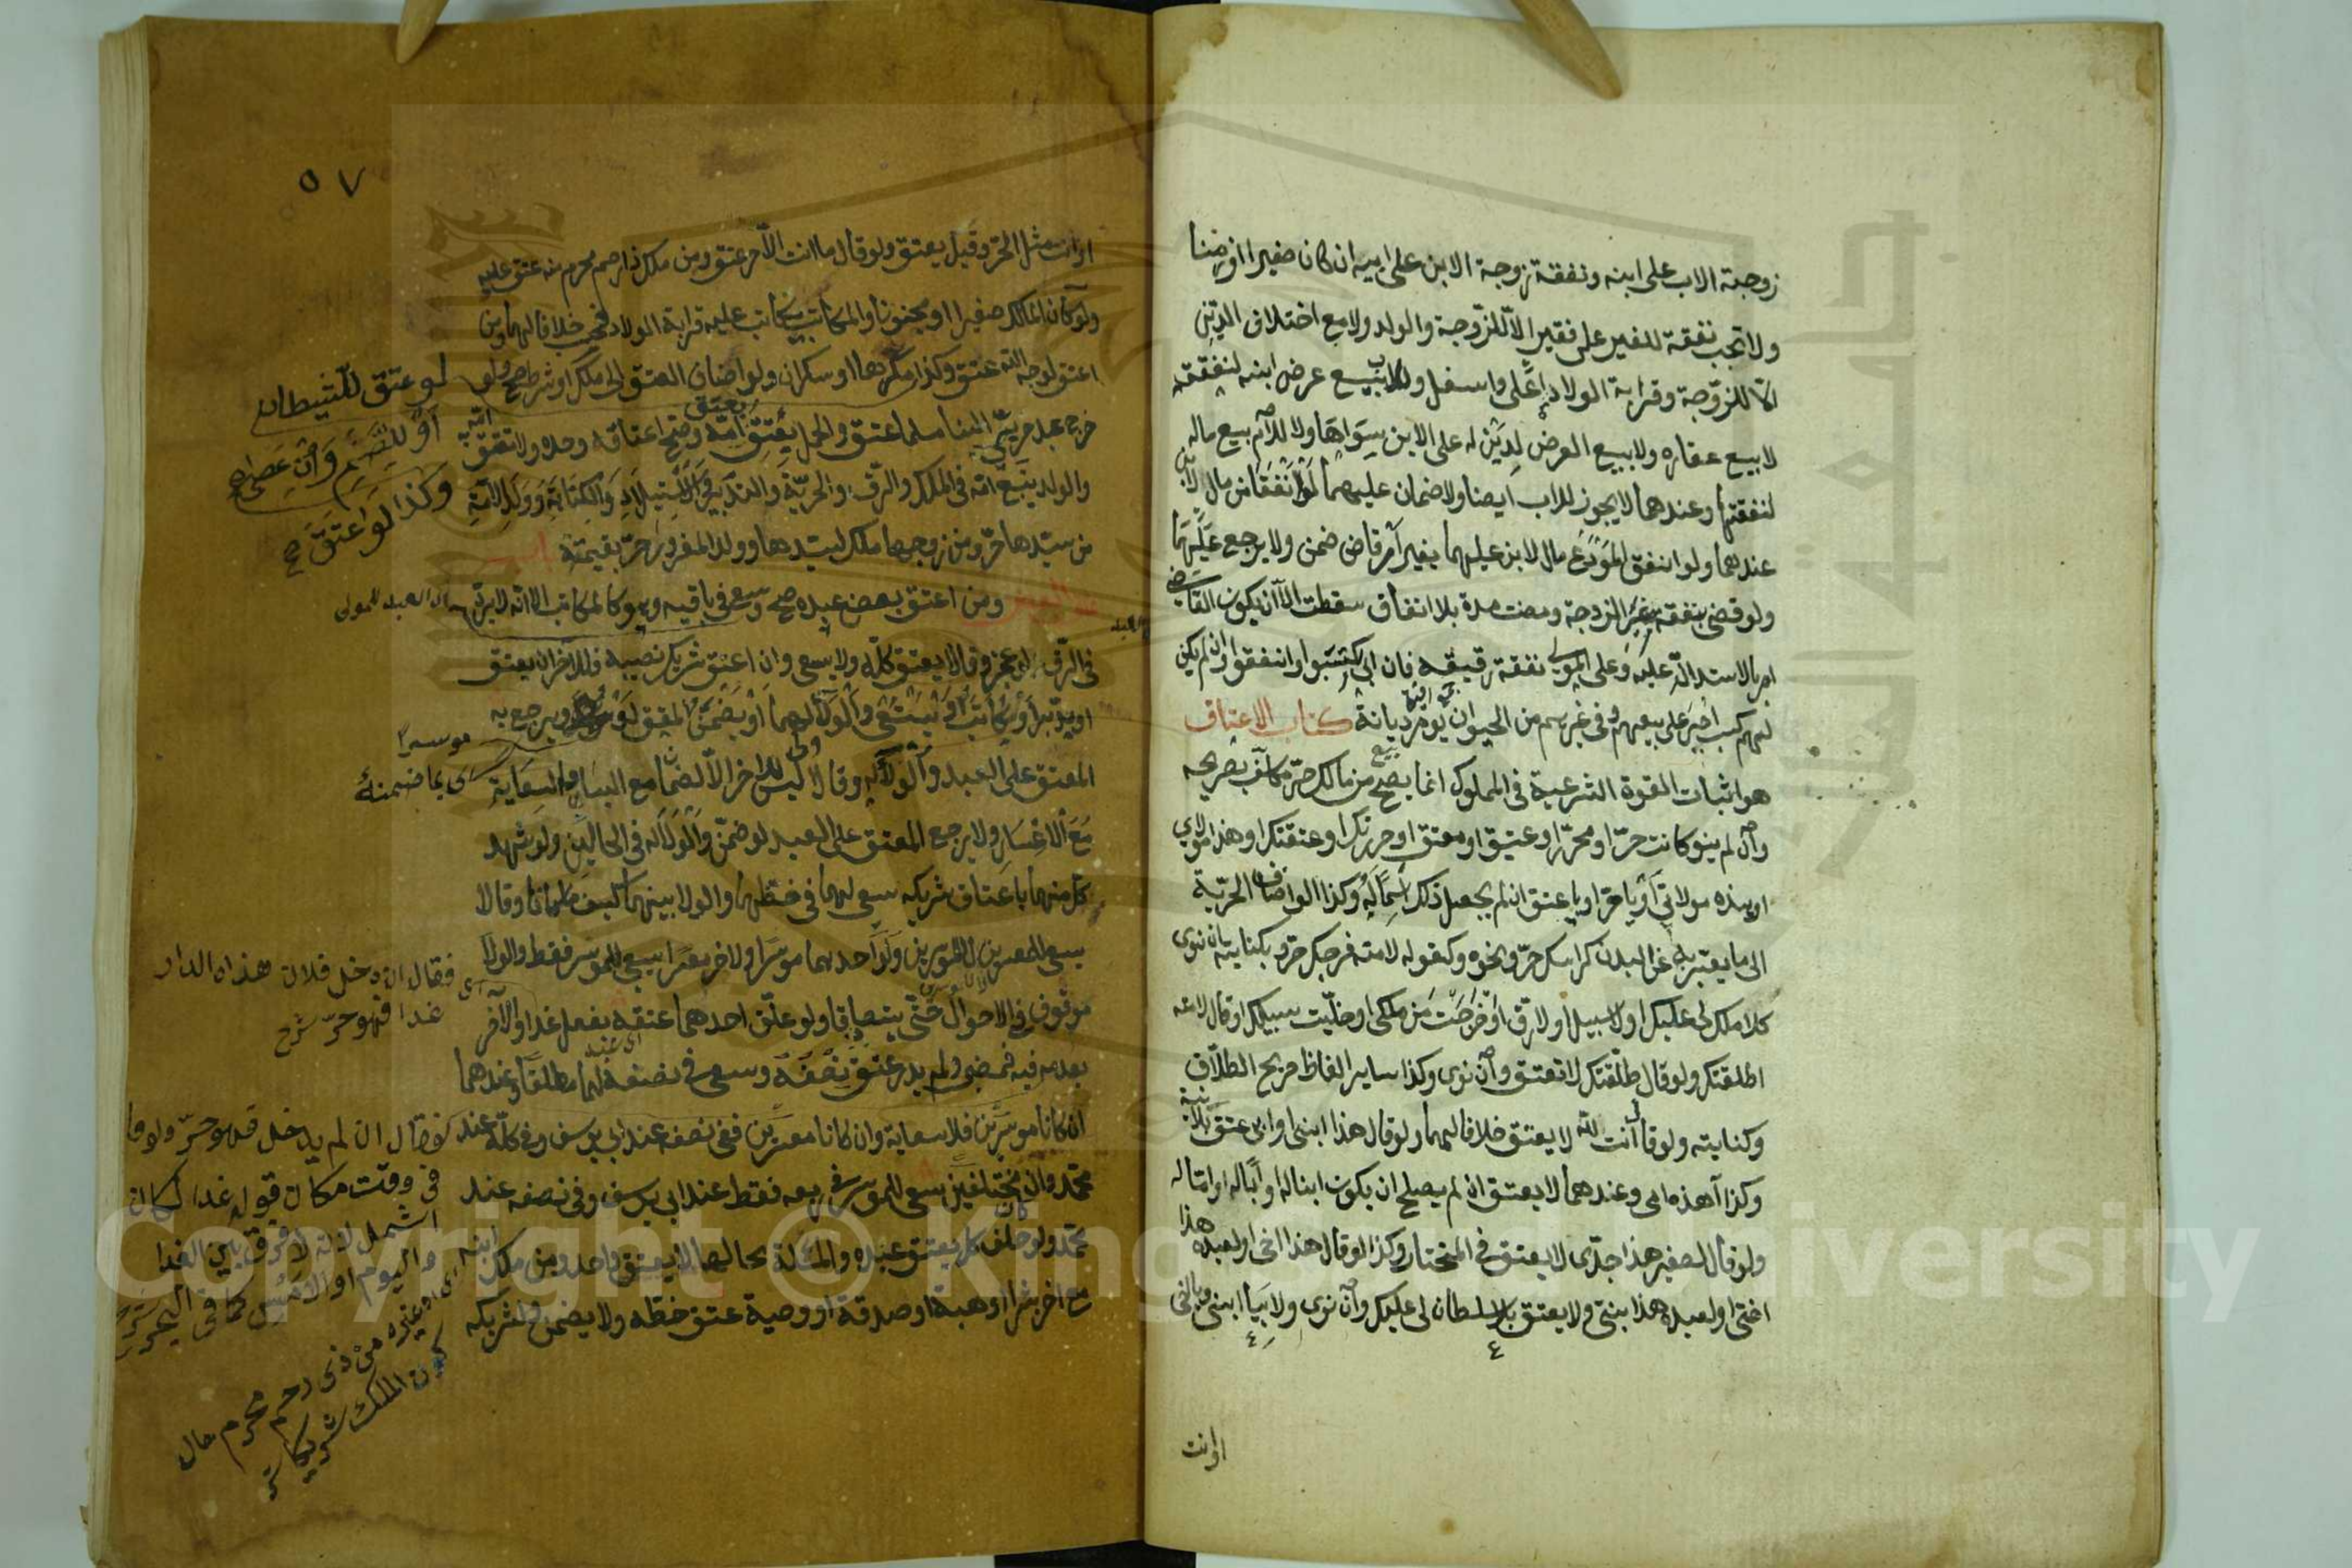 زوجة الاب على ابنه ونفقة زوجة الابن على ابيه ان كان صغيرا او زمنا
ولا تجب نفقة للغير على فقير الا للزوجة والولد ولا مع اختلاف الدين
الا للزوجة وقرابة الولاد اعلى واسفل وللاب بيع عرض ابنه لنفقته
لا بيع عقاره ولا بيع العرض لدين له على الابن سواها ولا للام بيع ماله
لنفقتها وعندهما لا يجوز للاب ايضا ولا ضمان عليهما لو انفقا من مال الابن
عندهما ولو انفق المودع مال الابن عليهما بغير امر قاض ضمن ولا يرجع عليهما
ولو قضى بنفقة غير الزوجة ومضت مدة بلا انفاق سقطت الا ان يكون القاضي
امر بالاستدانة عليه وعلى المولى نفقة رقيقه فان ابى اكتسبوا وانفقوا وان لم يكن
لهم كسب اجبر على بيعهم وفي غيرهم من الحيوان يؤمر ديانة كتاب الاعتاق
هو اثبات القوة الشرعية في المملوك انما يصح من مالك حر مكلف بصريحه
وان لم ينو كانت حر او محرر او عتيق او معتق او حررتك او عتقتك او هذا مولاي
او هذه مولاتي او يا حر او يا عتيق ان لم يجعل ذلك اسما له وكذا لو اضاف الحرية
الى ما يعبر به عن البدن كراسك حر ونحوه وكقوله لامته فرجك حر وبكنايته ان نوى
كلا ملك لي عليك او لا سبيل او لا رق او خرجت من ملكي او خليت سبيلك او قال لامته
اطلقتك ولو قال طلقتك لا تعتق وان نوى وكذا ساير الفاظ صريح الطلاق
وكنايته ولو قال انت لله لا يعتق خلافا لهما ولو قال هذا ابني او ابي عتق بلا نية
وكذا هذه امي وعندهما لا يعتق ان لم يصلح ان يكون ابنا له او ابا له او اما له
ولو قال لصغير هذا جدي لا يعتق في المختار وكذا لو قال هذا اخي او لعبده هذا
اختي او لعبده هذا بنتي ولا يعتق بلا سلطان لي عليك وان نوى ولا بيا ابني ويا اخي
او انت
٥٧
او انت مثل الحر وقيل يعتق ولو قال ما انت الا حر عتق ومن ملك ذا رحم محرم منه عتق عليه
ولو كان المالك صغيرا او مجنونا والمكاتب يتكاتب عليه قرابة الولاد فحسب خلافا لهما ومن
اعتق لوجه الله عتق وكذا مكرها او سكران ولو اضاف العتق الى ملك او شرط صح ولو
خرج عبد حربي الينا مسلما عتق والحمل يعتق بعتق امه وصح اعتاقه وحده ولا تعتق امه
والولد يتبع امه في الملك والرق والحرية والتدبير والاستيلاد والكتابة وولد الامة
من سيدها حر ومن زوجها ملك لسيدها وولد المغرور حر بقيمته باب
عتق البعض ومن اعتق بعض عبده صح وسعى في باقيه وهو كالمكاتب الا انه لا يرد
في الرق لو عجز وقالا يعتق كله ولا يسعى وان اعتق شريك نصيبه فللآخر ان يعتق
او يدبر او يكاتب او يستسعى والولاء لهما او يضمن المعتق لو موسرا ويرجع به
المعتق على العبد والولاء له وقالا ليس للاخر الا الضمان مع اليسار والسعاية
مع الاعسار ولا يرجع المعتق على العبد لو ضمن والولاء له في الحالين ولو شهد
كل منهما باعتاق شريكه سعى لهما في حظهما والولا بينهما كيف ما كانا وقالا
يسعى للمعسرين لا للموسرين ولو احدهما موسرا والاخر معسرا يسعى للموسر فقط والولاء
موقوف في الاحوال حتى يتصادقا ولو علق احدهما عتقه بفعل غدا والآخر
بعدمه فيه فمضى ولم يدر عتق نصفه وسعى في نصفه لهما مطلقا وعندهما
ان كانا موسرين فلا سعاية وان كانا معسرين ففي نصفه عند ابي يوسف وفي كله عند
محمد وان كانا مختلفين سعى للموسر في ربعه فقط عند ابي يوسف وفي نصفه عند
محمد ولو حلف كل بعتق عبده والمسئلة بحالها لا يعتق واحد ومن ملك ابنه
مع اخر بشرا او هبة او صدقة او وصية عتق حظه ولا يضمن لشريكه
لو عتق للشيطان
او للصنم وان عصى
وكذا لو اعتق
العبد للمولى
موسرا
اى بما ضمنه
فقال ان دخل فلان هذه الدار
غدا فهو حر شرح
فقال ان لم يدخل فهو حر ولو قا
في وقت مكان قوله غدا لكان
اشمل لانه لا فرق بين الغد
واليوم او الامس كما في البحر
او غيره من ذي رحم محرم حال
كون الملك شريكا